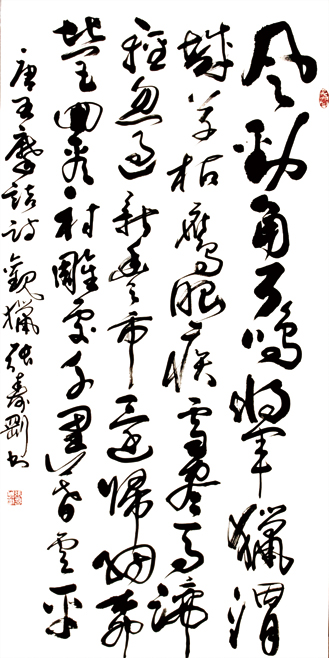 風勁角弓鳴將軍獵渭
城草枯鷹眼疾雪盡馬蹄
輕忽過新豐市還歸細柳
營回看射雕處千里暮雲平
唐王摩詰詩觀獵張壽剛書